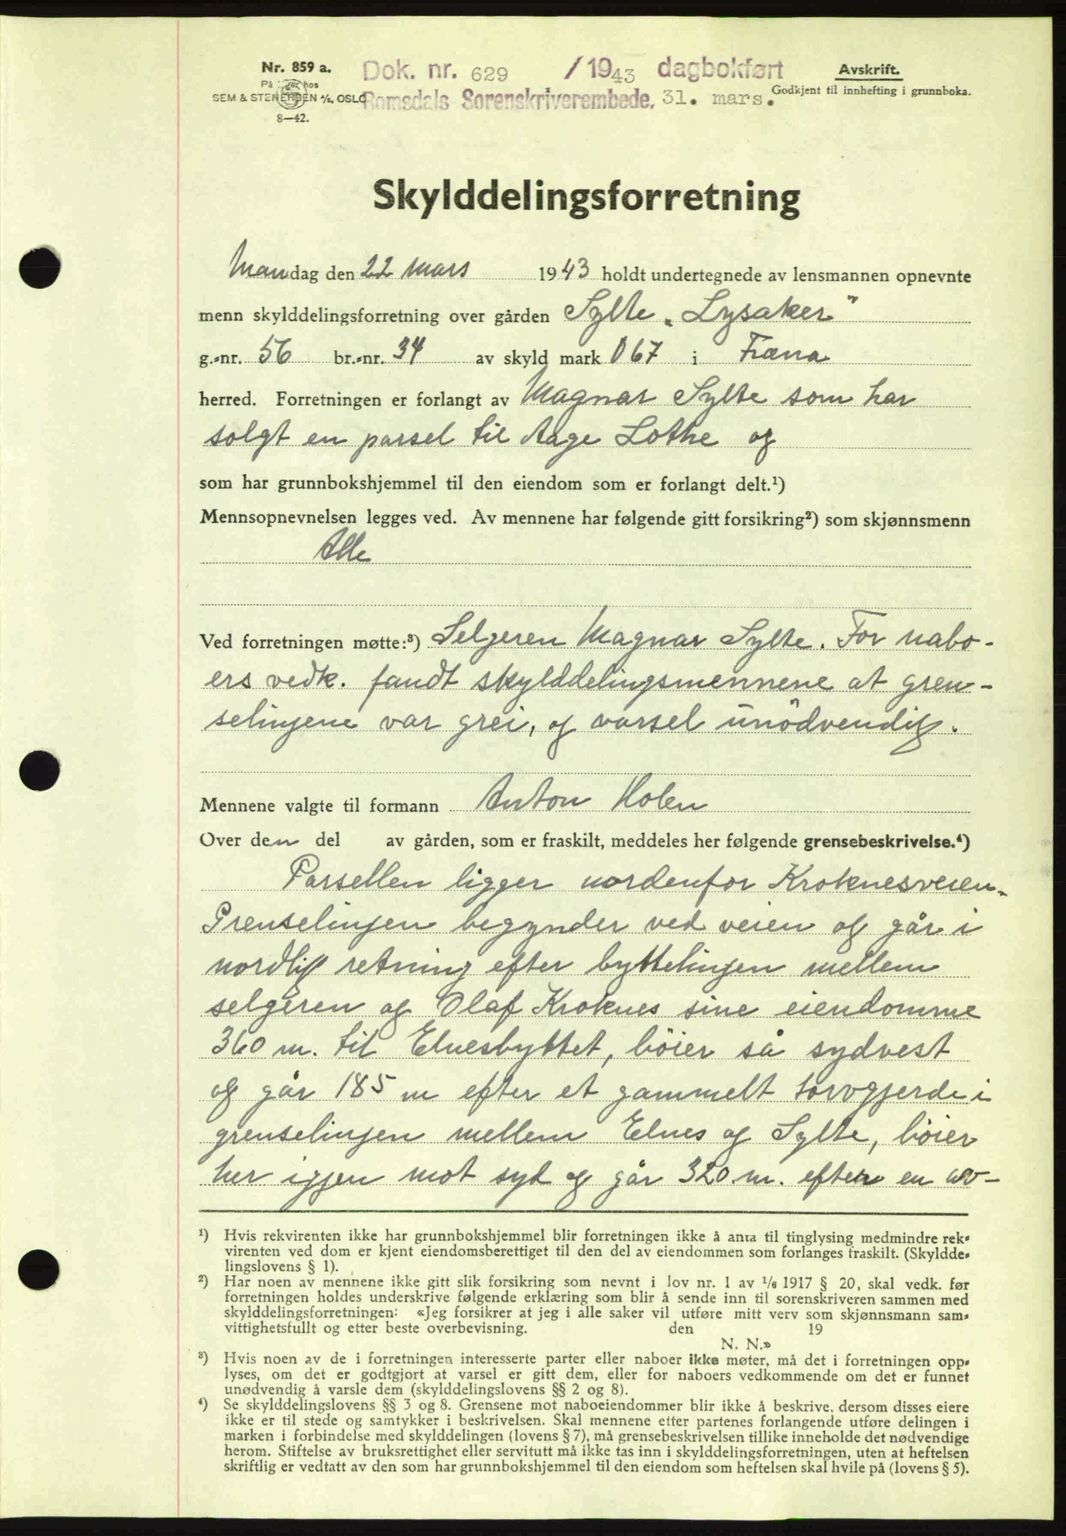 Nr. 859 a.
På lager hos
SEM & STENERSEN A/s, OSLO
8—42.
Dok. nr. 629 /1943 dagbokført
Romsdals Sorenskriverembede, 31. mars.
Avskrift.
Godkjent til innhefting i grunnboka.
Skylddelingsforretning
Mandag den 22 mars 1943 holdt undertegnede av lensmannen opnevnte
menn skylddelingsforretning over gården Sylte „Lysaker"
g.-nr. 56 br.-nr. 34 av skyld mark 0 67 i Fræna
herred. Forretningen er forlangt av Magnar Sylte som har
solgt en parsel til Aage Lothe og
som har grunnbokshjemmel til den eiendom som er forlangt delt.¹)
Mennsopnevnelsen legges ved. Av mennene har følgende gitt forsikring²) som skjønnsmenn
Alle
Ved forretningen møtte:³) Selgeren Magnar Sylte. For nabo-
ers vedk. fandt skylddelingsmennene at gren-
selinjene var grei, og varsel unödvendig.
Mennene valgte til formann Anton Holen
Over den del av gården, som er fraskilt, meddeles her følgende grensebeskrivelse.⁴)
Parsellen ligger nordenfor Kroknesveien.
Grenselinjen begynder ved veien og går i
nordlig retning efter byttelinjen mellem
selgeren og Olaf Kroknes sine eiendomme
360 m. til Elnesbyttet, böier så sydvest
og går 185 m efter et gammelt torvgjerde i
grenselinjen mellem Elnes og Sylte, böier
her igjen mot syd og går 320 m. efter en av-
¹) Hvis rekvirenten ikke har grunnbokshjemmel blir forretningen ikke å anta til tinglysing medmindre rek-
virenten ved dom er kjent eiendomsberettiget til den del av eiendommen som forlanges fraskilt. (Skyldde-
lingslovens § 1).
²) Har noen av mennene ikke gitt slik forsikring som nevnt i lov nr. 1 av 1/6 1917 § 20, skal vedk. før
forretningen holdes underskrive følgende erklæring som blir å sende inn til sorenskriveren sammen med
skylddelingsforretningen: «Jeg forsikrer at jeg i alle saker vil utføre mitt verv som skjønnsmann sam-
vittighetsfullt og etter beste overbevisning. den 19
N. N.»
³) Hvis noen av de i forretningen interesserte parter eller naboer ikke møter, må det i forretningen opp-
lyses, om det er godtgjort at varsel er gitt dem, eller for naboers vedkommende om det er funnet
unødvendig å varsle dem (skylddelingslovens §§ 2 og 8).
⁴) Se skylddelingslovens §§ 3 og 8. Grensene mot naboeiendommer blir ikke å beskrive, dersom disses eiere
ikke er til stede og samtykker i beskrivelsen. Skal mennene etter partenes forlangende utføre delingen i
marken i forbindelse med skylddelingen (lovens § 7), må grensebeskrivelsen tillike inneholde det nødvendige
herom. Stiftelse av bruksrettighet eller servitutt må ikke tas inn i skylddelingsforretningen, uten at heftelsen
skriftlig er vedtatt av den som har grunnbokshjemmel til den eiendom som heftelsen skal hvile på (lovens § 5).